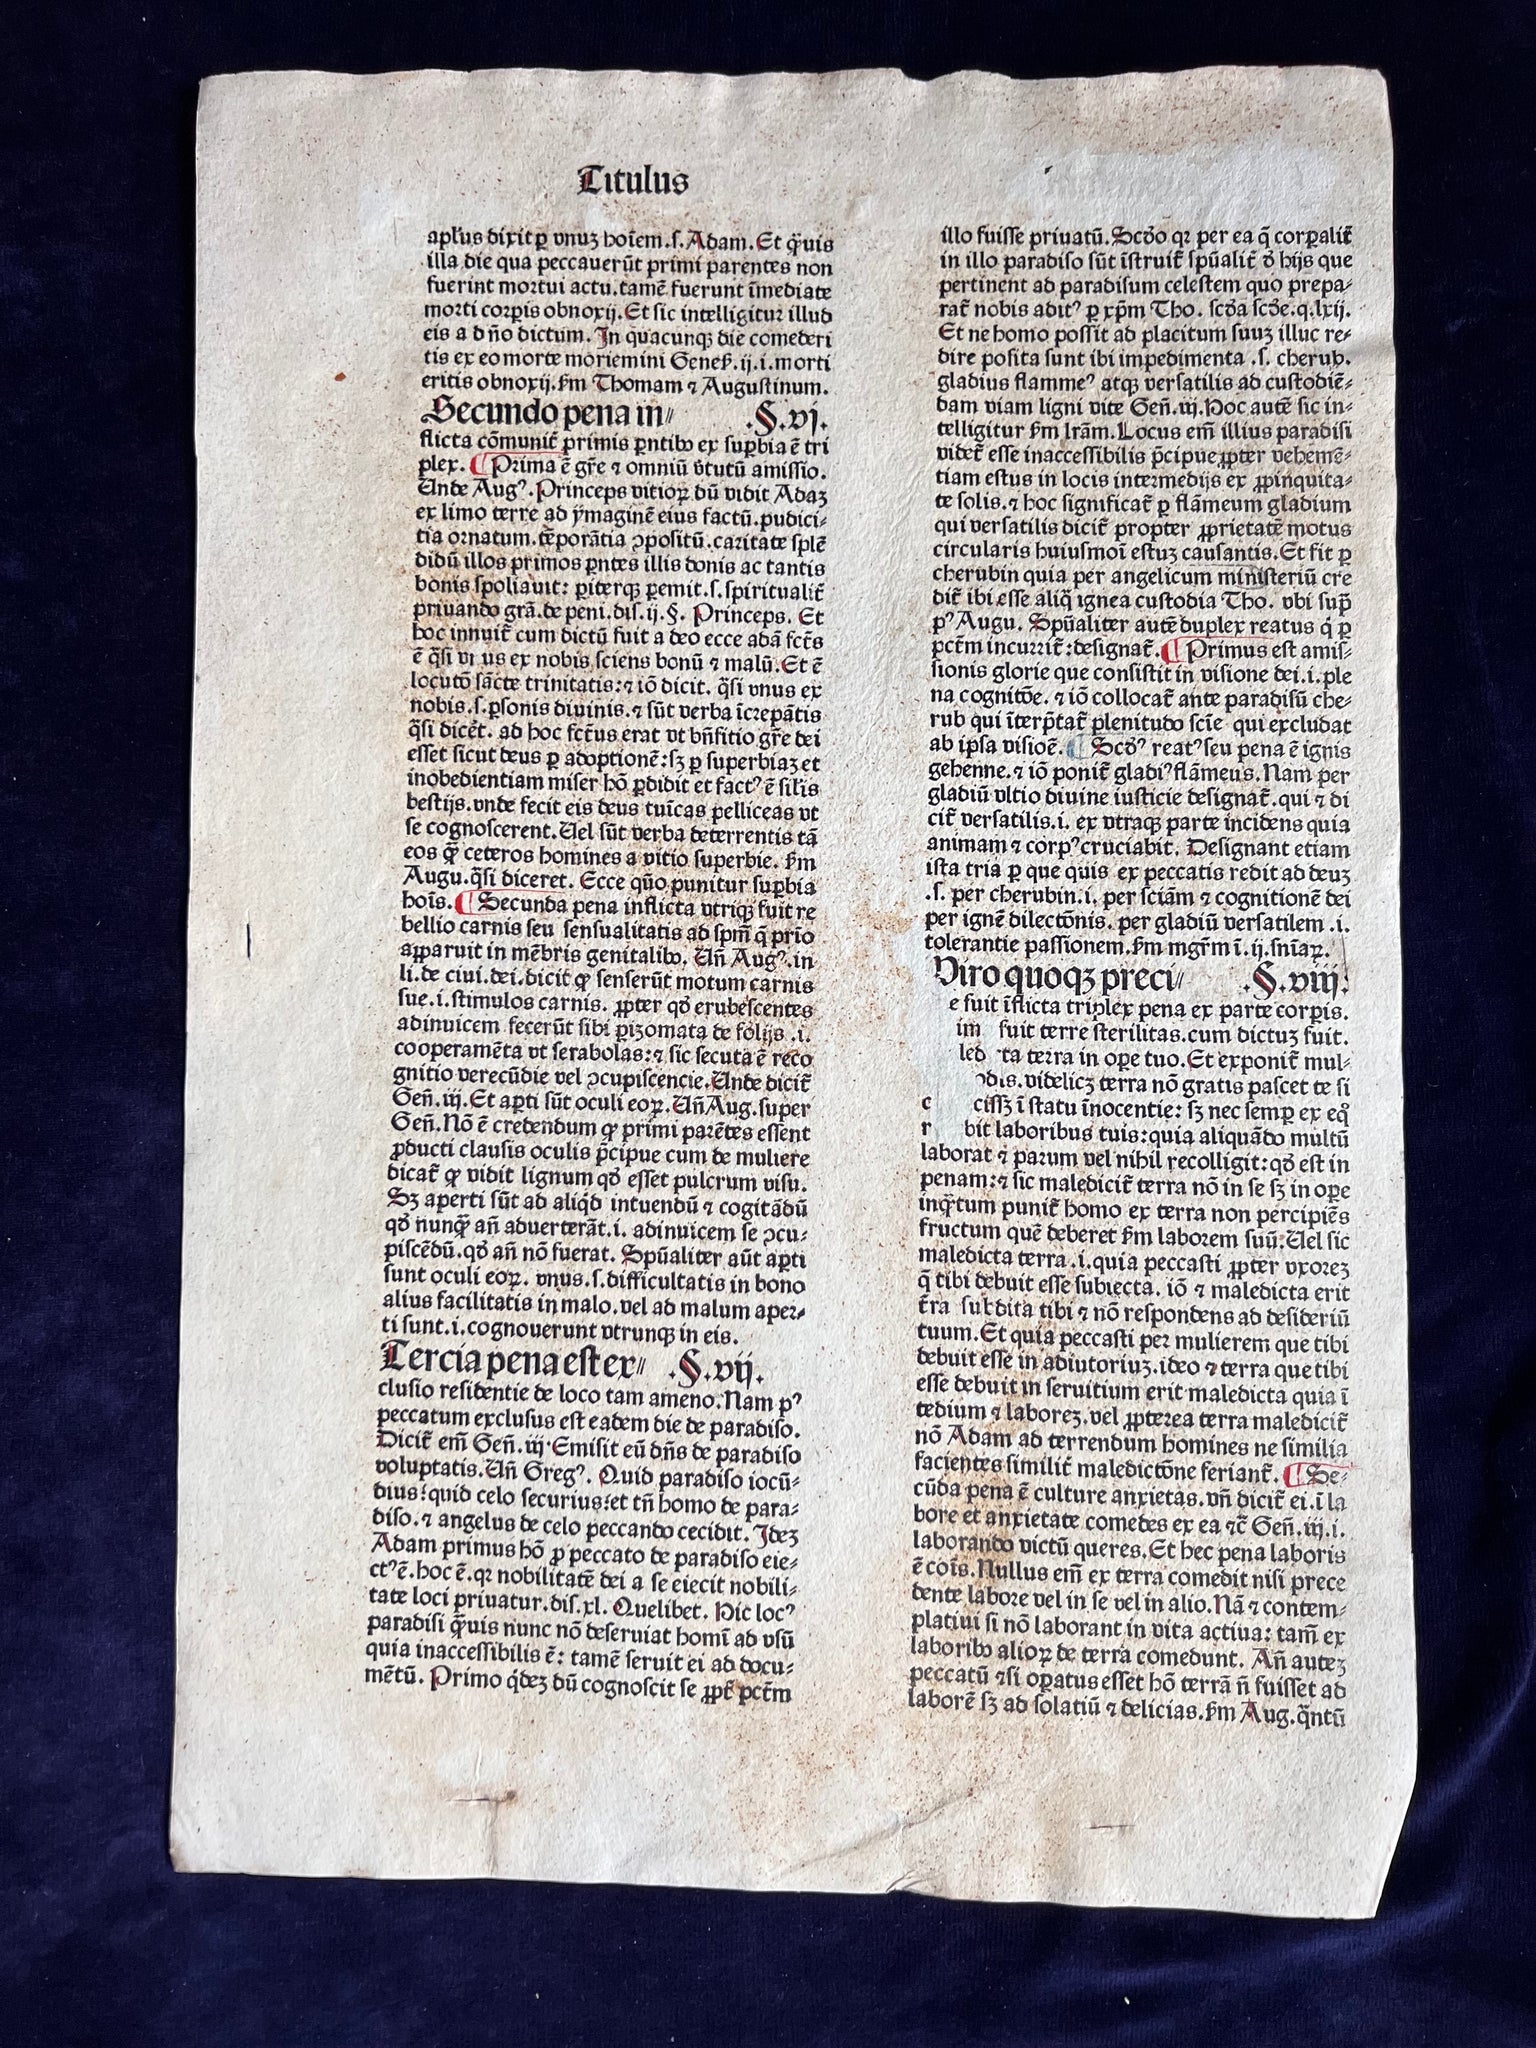 Titulus
aplꝰus dixit ꝑ vnuʒ hoīem.s.Adam.Et q̄uis
illa die qua peccauerūt primi parentes non
fuerint mortui actu.tamē fuerunt īmediate
morti corꝑis obnoxij.Et sic intelligitur illud
eis a dño dictum. In quacunqʒ die comederi
tis ex eo morte moriemini Genes.ij.i.morti
eritis obnoxij.ẜm Thomam ⁊ Augustinum.
Secundo pena in⸗ .§.vj.
flicta cōmunit̄ primis ꝑntibꝰ ex suꝑbia ē tri
plex. ¶Prima ē gr̄e ⁊ omniū v̄tutū amissio.
Unde Augꝰ.Princeps vitioꝝ dū vidit Adaʒ
ex limo terre ad ymaginē eius factū.pudici⸗
tia ornatum.tēporātia ꝯpositū.caritate splē
didū illos primos ꝑntes illis donis ac tantis
bonis spoliauit: ꝑiterqʒ ꝑemit.s.spiritualit̄
priuando grā.de peni.dis.ij.§. Princeps. Et
hoc innuit̄ cum dictū fuit a deo ecce adā fcts̄
ē q̄si vnus ex nobis sciens bonū ⁊ malū.Et ē
locutō sācte trinitatis:⁊ iō dicit. q̄si vnus ex
nobis.s.ꝑsonis diuinis.⁊ sūt verba īcrepātis
q̄si dicet̄. ad hoc fctūs erat vt bn̄fitio gr̄e dei
esset sicut deus ꝑ adoptionē:sʒ ꝑ superbiaʒ et
inobedientiam miser hō ꝑdidit et factꝰ ē sil̄is
bestijs.vnde fecit eis deus tuīcas pelliceas vt
se cognoscerent.Uel sūt verba deterrentis tā
eos ꝙ̄ ceteros homines a vitio superbie. ẜm
Augu.q̄si diceret. Ecce quō punitur suꝑbia
hoīs. ¶Secunda pena inflicta vtriqʒ fuit re
bellio carnis seu sensualitatis ad spm̄ q̄ prīo
aꝑparuit in mēbris genitalibꝰ. Uñ Augꝰ.in
li.de ciui.dei.dicit ꝙ senserūt motum carnis
sue.i.stimulos carnis. ꝓpter qd̄ erubescentes
adinuicem fecerūt sibi ꝑizomata de folijs .i.
cooperamēta vt serabolas:⁊ sic secuta ē reco
gnitio verecūdie vel ꝯcupiscencie.Unde dicit̄
Geñ.iij.Et aꝑti sūt oculi eoꝝ.Uñ Aug.super
Geñ.Nō ē credendum ꝙ primi parētes essent
ꝓducti clausis oculis p̄cipue cum de muliere
dicat̄ ꝙ vidit lignum qd̄ esset pulcrum visu.
Sʒ aperti sūt ad aliq̇d intuendū ⁊ cogitādū
qd̄ nunq̄ añ aduerterāt.i. adinuicem se ꝯcu⸗
piscēdū.qd̄ añ nō fuerat. Spūaliter aūt aꝑti
sunt oculi eoꝝ. vnus.s.difficultatis in bono
alius facilitatis in malo.vel ad malum aper⸗
ti sunt.i.cognouerunt vtrunqʒ in eis.
Tercia pena est ex⸗ .§.vij.
clusio residentie de loco tam ameno.Nam pꝰ
peccatum exclusus est eadem die de paradiso.
Dicit̄ em̄ Geñ.iij.Emisit eū dn̄s de paradiso
voluptatis.Uñ Gregꝰ. Quid paradiso iocū⸗
dius:quid celo securius:et tn̄ homo de para⸗
diso.⁊ angelus de celo peccando cecidit. Ideʒ
Adam primus hō ꝓ peccato de paradiso eie⸗
ctꝰē.hoc ē.qꝛ nobilitatē dei a se eiecit nobili⸗
tate loci priuatur.dis.xl. Quelibet. Hic locꝰ
paradisi q̄uis nunc nō deseruiat homī ad vsū
quia inaccessibilis ē: tamē seruit ei ad docu⸗
mētū. Primo q̇deʒ dū cognoscit se ꝓpt̄ pctm̄
illo fuisse priuatū.Scd̄o qꝛ per ea q̄ corꝑalit̄
in illo paradiso sūt īstruit̄ spūalit̄ d̄ hijs que
pertinent ad paradisum celestem quo prepa⸗
rat̄ nobis aditꝰ ꝑ xp̄m Tho. scd̄a scd̄e.q.lxij.
Et ne homo possit ad placitum suuʒ illuc re⸗
dire posita sunt ibi impedimenta .s. cherub.
gladius flammeꝰ atqʒ versatilis ad custodiē⸗
dam viam ligni vite Geñ.iij.Hoc autē sic in⸗
telligitur ẜm lrām.Locus em̄ illius paradisi
videt̄ esse inaccessibilis p̄cipue ꝓpter vehemē⸗
tiam estus in locis intermedijs ex ꝓpinquita⸗
te solis.⁊ hoc significat̄ ꝑ flāmeum gladium
qui versatilis dicit̄ propter ꝓprietatē motus
circularis huiusmoī estuʒ causantis.Et fit ꝑ
cherubin quia per angelicum ministeriū cre
dit̄ ibi esse aliq̄ ignea custodia Tho. vbi sup̄
pꝰ Augu. Spūaliter autē duplex reatus q̇ ꝑ
pctm̄ incurrit̄:designat̄. ¶Primus est amis⸗
sionis glorie que consistit in visione dei.i.ple
na cognitōe.⁊ iō collocat̄ ante paradisū che⸗
rub qui īterp̄tat̄ plenitudo scīe qui excludat
ab ipsa visioē. ¶Scd̄ꝰ reatꝰ seu pena ē ignis
gehenne.⁊ iō ponit̄ gladiꝰ flāmeus.Nam per
gladiū vltio diuine iusticie designat̄.qui ⁊ di
cit̄ versatilis.i. ex vtraqʒ parte incidens quia
animam ⁊ corpꝰ cruciabit. Designant etiam
ista tria ꝑ que quis ex peccatis redit ad deuʒ
.s. per cherubin.i. per sciām ⁊ cognitionē dei
per ignē dilectōnis. per gladiū versatilem .i.
tolerantie passionem.ẜm mgr̄m ī. ij. snīaꝝ.
Viro quoqʒ preci⸗ .§.viij.
e fuit īflicta triplex pena ex parte corꝑis.
im fuit terre sterilitas.cum dictuʒ fuit.
led ta terra in oꝑe tuo.Et exponit̄ mul⸗
odis.videlicʒ terra nō gratis pascet te si
c cissʒ ī statu īnocentie: sʒ nec semꝑ ex eq̊
r bit laboribus tuis:quia aliquādo multū
laborat ⁊ parum vel nihil recolligit:qd̄ est in
penam:⁊ sic maledicit̄ terra nō in se sʒ in oꝑe
inq̄tum punit̄ homo ex terra non percipiēs
fructum quē deberet ẜm laborem suū.Uel sic
maledicta terra .i.quia peccasti ꝓpter vxoreʒ
q̄ tibi debuit esse subiecta. iō ⁊ maledicta erit
t̄ra subdita tibi ⁊ nō respondens ad desideriū
tuum.Et quia peccasti per mulierem que tibi
debuit esse in adiutoriuʒ.ideo ⁊ terra que tibi
esse debuit in seruitium erit maledicta quia ī
tedium ⁊ laboreʒ.vel ꝓpterea terra maledicit̄
nō Adam ad terrendum homines ne similia
facientes similit̄ maledictōne feriant̄. ¶Se⸗
cūda pena ē culture anxietas.vñ dicit̄ ei.ī la
bore et anxietate comedes ex ea ⁊c̄ Geñ.iij.i.
laborando victū queres.Et hec pena laboris
ē coīs.Nullus em̄ ex terra comedit nisi prece
dente labore vel in se vel in alio.Nā ⁊ contem⸗
platiui si nō laborant in vita actiua: tam̄ ex
laboribꝰ alioꝝ de terra comedunt. Añ auteʒ
peccatū ⁊si oꝑatus esset hō terrā ñ fuisset ad
laborē sʒ ad solatiū ⁊ delicias.ẜm Aug.q̄ntū